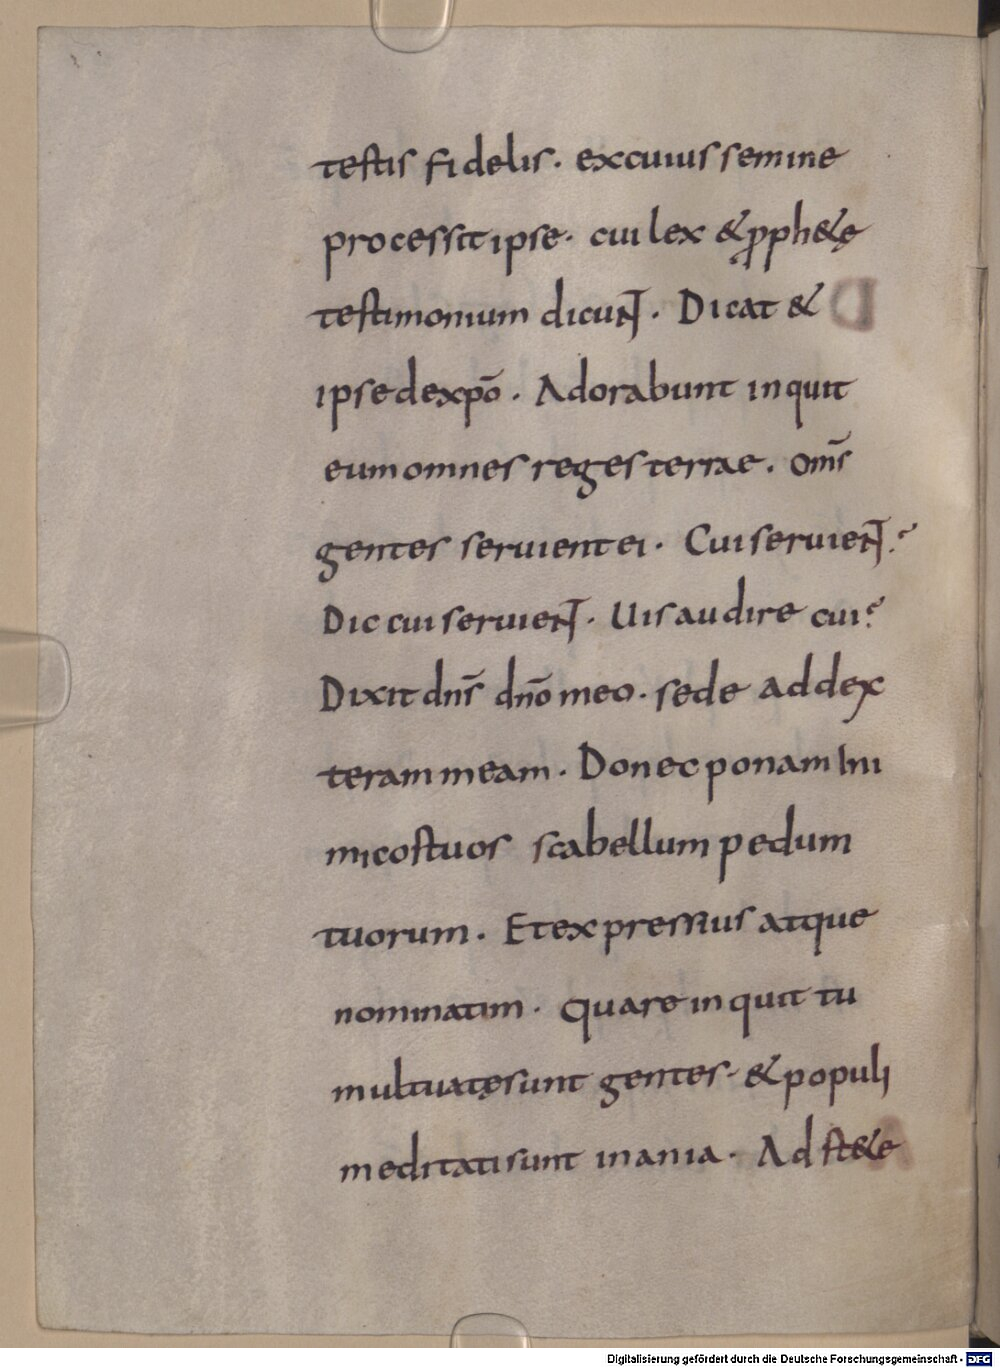 testis fidelis· excuius semine
processit ipse· cui lex & ꝓph&ę
testimonium dicunt· Dicat &
ipse dexpō· Adorabunt inquit
eum omnes reges terrae· oms̄
gentes seruient ei· Cui seruient?
Dic cui seruient· Uis audire cui?
Dixit dn̄s dn̄o meo· sede addex
teram meam· Donec ponam ini
micos tuos scabellum pedum
tuorum· Et expressius atque
nominatim· Quare inquit tu
multuatę sunt gentes· & populi
meditati sunt inania· Adst&e
Digitalisierung gefördert durch die Deutsche Forschungsgemeinschaft - DFG